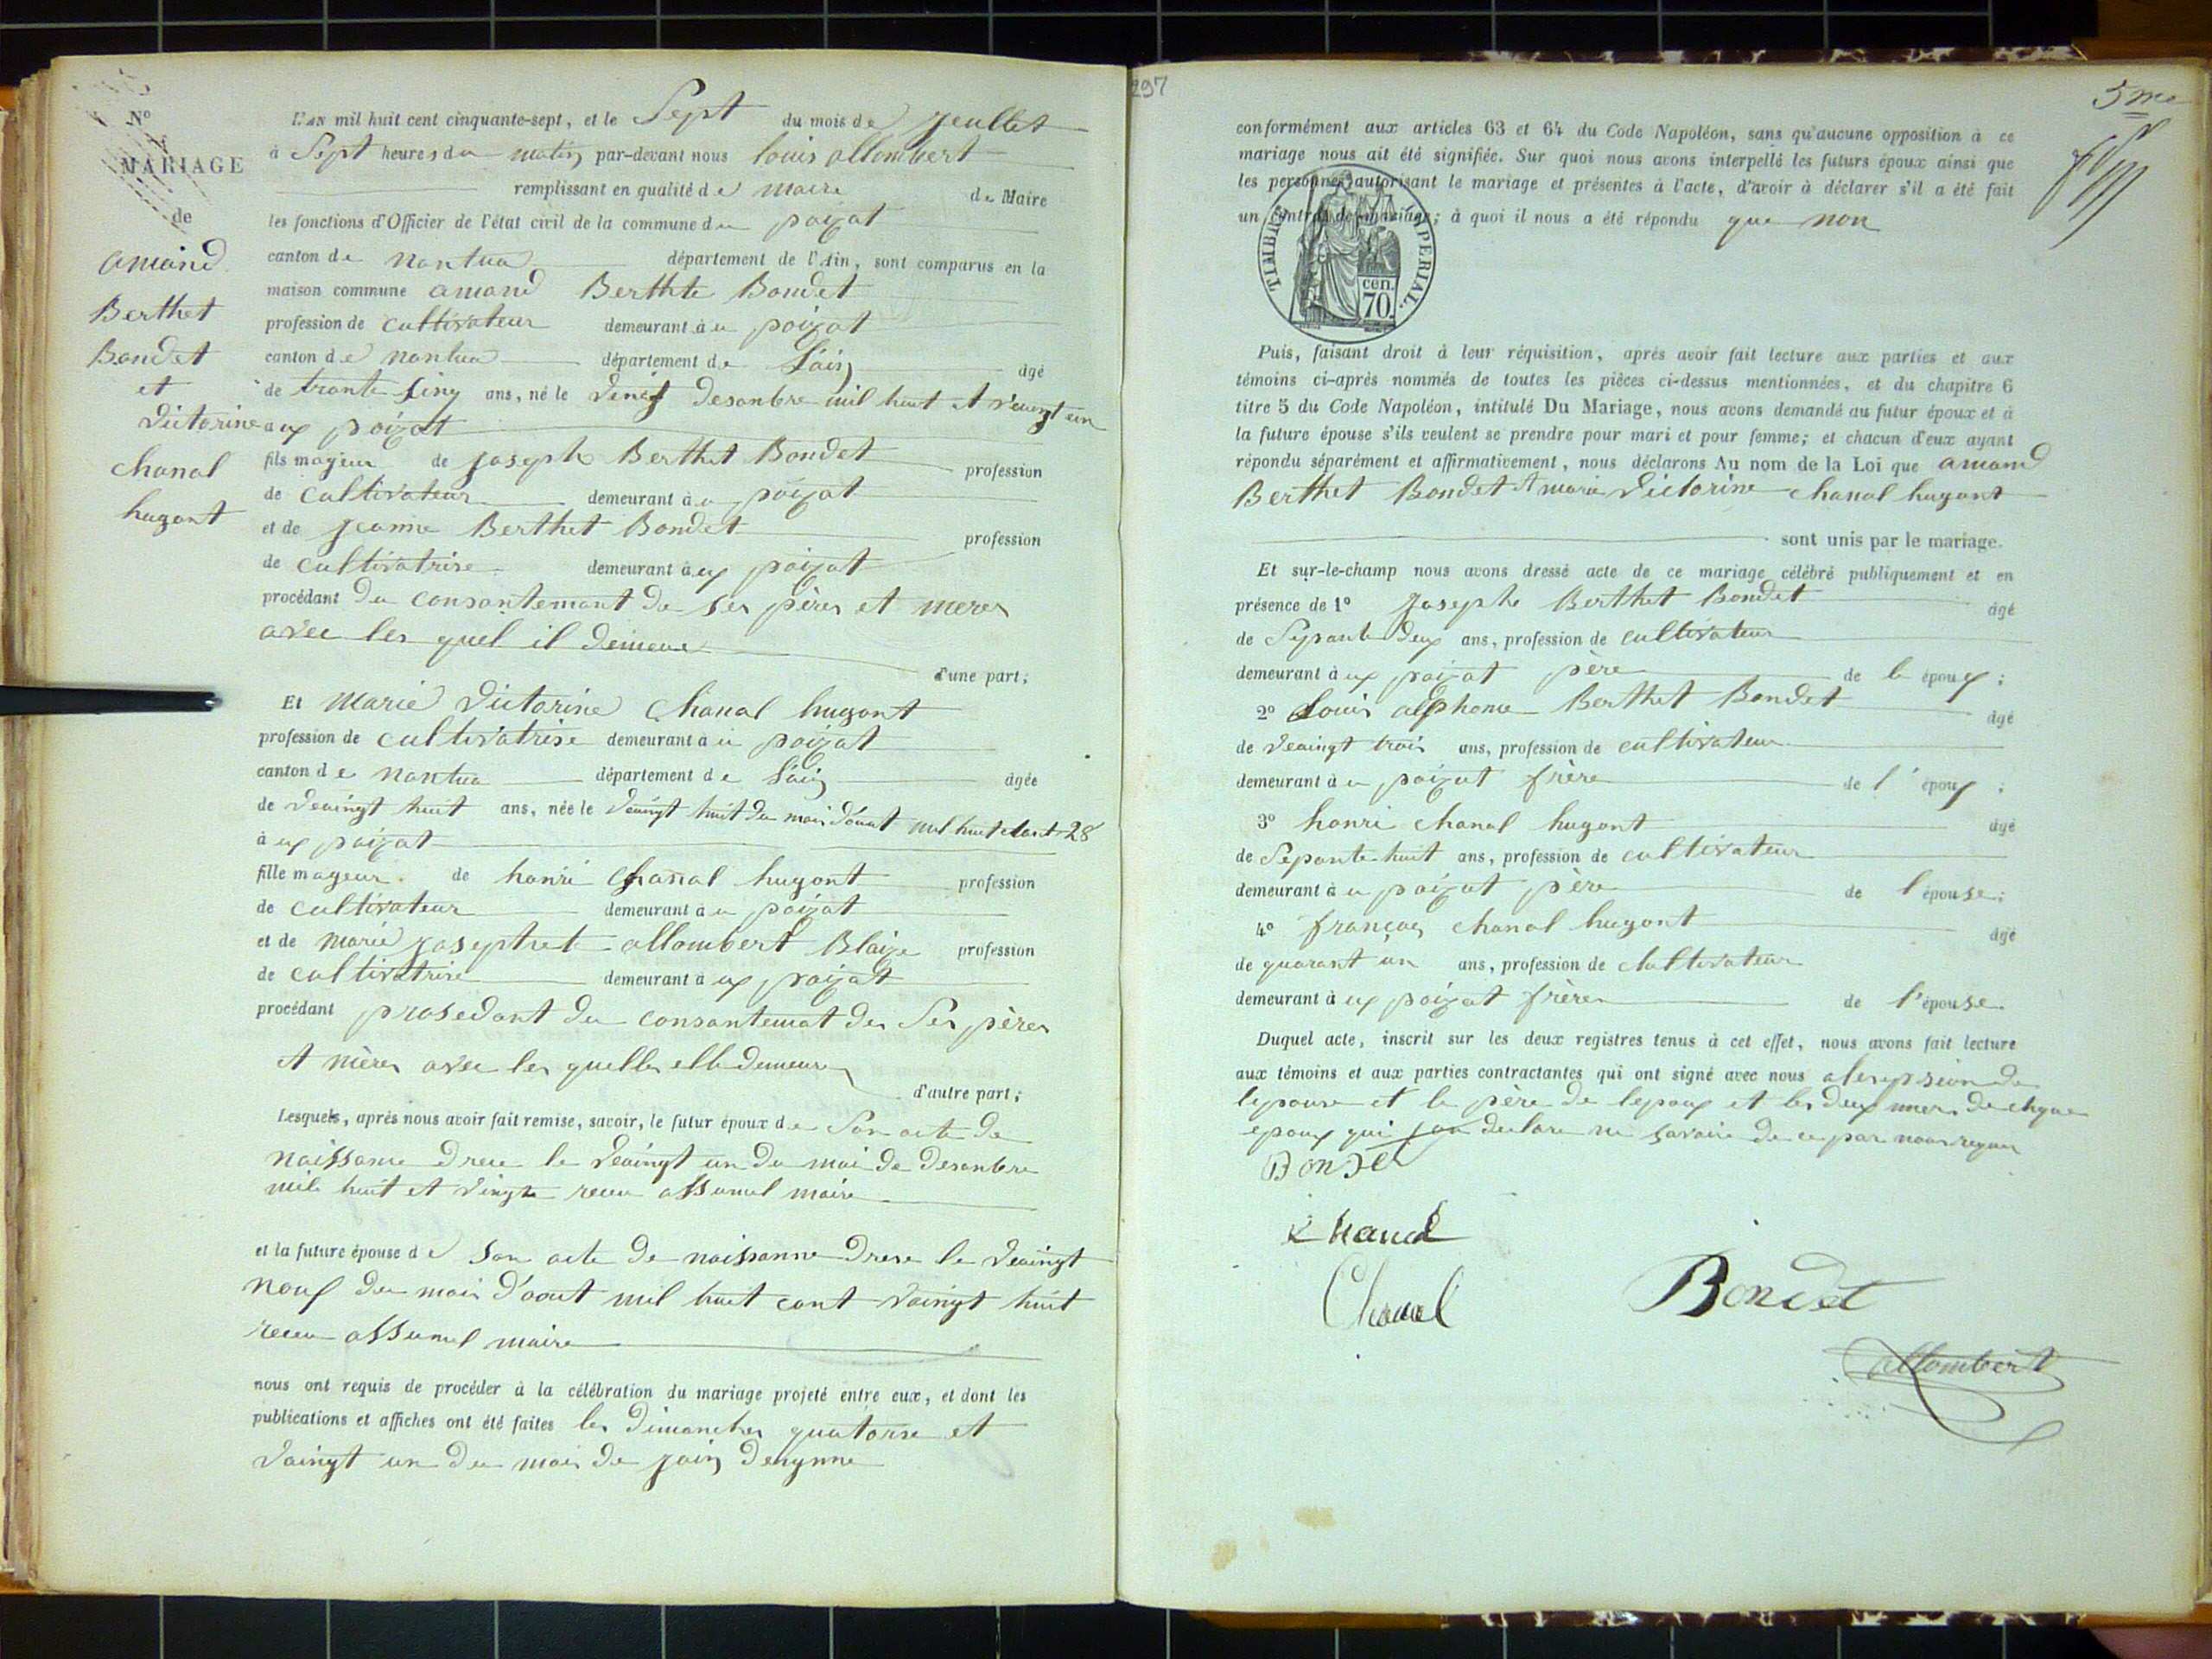 N°
MARIAGE
de
amand
Berthet
Bondet
et
victorine
chanal
hugont
L'AN mil huit cent cinquante-sept, et le Sept du mois de Jeullet
à Sept heures du matin par-devant nous louis allombert
remplissant en qualité de maire de Maire
les fonctions d'Officier de l'état civil de la commune du poizat
canton de nantua département de l'Ain, sont comparus en la
maison commune amand Berthte Bondet
profession de cultivateur demeurant à u poizat
canton de nantua département de L'ain âgé
de trante sinq ans, né le desanbre mil huit et vaingt un
à ux poizat
fils majeur de joseph Berthet Bondet profession
de cultivateur demeurant à u poizat
et de jeanne Berthet Bondet profession
de cultivatrise demeurant à ux poizat
procédant du consantemant de ses pères et meres
avec les quel il demeure
d'une part;
Et marie victorine chanal hugont
profession de cultivatrise demeurant à u poizat
canton de nantua département de L'ain âgée
de veaingt huit ans, née le veaingt huit du mois d'aout mil huit cant 28
à ux poizat
fille mageur de hanri chanal hugont profession
de cultivateur demeurant à u poizat
et de marie josephet allombert Blaize profession
de cultivatrise demeurant à ux poizat
procédant prosedant du consantemat des Ses pères
et mères avec les quelles elle demeure
d'autre part;
Lesquels, après nous avoir fait remise, savoir, le futur époux de Son acte de
naissance drece le veaingt un du moi de desanbre
mile huit et vingt receu assumel maire
et la future épouse de son acte de naissanne drese le veaingt
nouf du mois d'aout mil huit cant vaingt huit
receu assumel maire
nous ont requis de procéder à la célébration du mariage projeté entre eux, et dont les
publications et affiches ont été faites les dimanches quatorse et
vaingt un du mois de join
297
5me
conformément aux articles 63 et 64 du Code Napoléon, sans qu'aucune opposition à ce
mariage nous ait été signifiée. Sur quoi nous avons interpellé les futurs époux ainsi que
les personnes autorisant le mariage et présentes à l'acte, d'avoir à déclarer s'il a été fait
un contrat de mariage; à quoi il nous a été répondu que non
TIMBRE IMPERIAL.
cen.
70.
Puis, faisant droit à leur réquisition, après avoir fait lecture aux parties et aux
témoins ci-après nommés de toutes les pièces ci-dessus mentionnées, et du chapitre 6
titre 5 du Code Napoléon, intitulé Du Mariage, nous avons demandé au futur époux et à
la future épouse s'ils veulent se prendre pour mari et pour femme; et chacun d'eux ayant
répondu séparément et affirmativement, nous déclarons Au nom de la Loi que amand
Berthet Bondet et marie victorine chanal hugont
sont unis par le mariage.
Et sur-le-champ nous avons dressé acte de ce mariage célébré publiquement et en
présence de 1° Josephe Berthet Bondet âgé
de Sepante deux ans, profession de cultivateur
demeurant à ux poizat père de l époux;
2° Louis alphonse Berthet Bondet âgé
de veaingt trois ans, profession de cultivateur
demeurant à u poizat frère de l'époux;
3° hanri chanal hugont âgé
de Sepante huit ans, profession de cultivateur
demeurant à u poizat père de l'épouse;
4° françois chanal hugont âgé
de quarant un ans, profession de clultivateur
demeurant à ux poizat frères de l'épouse.
Duquel acte, inscrit sur les deux registres tenus à cet effet, nous avons fait lecture
aux témoins et aux parties contractantes qui ont signé avec nous
lepouse et le père de lepoux et les deux meres de
epoux qui declare ne savoire de ce par nous
Bondet
Chanal
Chanal
Bondet
allombert